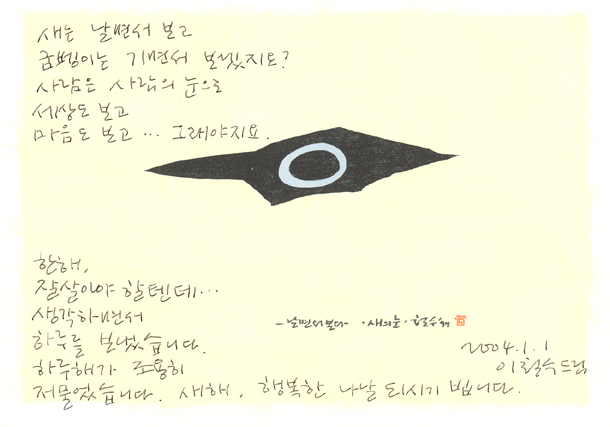 새는 날면서 보고
굼벵이는 기면서 보겠지요?
사람은 사람의 눈으로
세상도 보고
마음도 보고 ... 그래야지요.
한해,
잘살아야 할텐데...
생각하면서
하루를 보냈습니다.
하루해가 조용히
저물었습니다. 새해, 행복한 나날 되시기 빕니다.
- 날면서보다 - · 새의눈 ·
2004.1.1
이철수드림